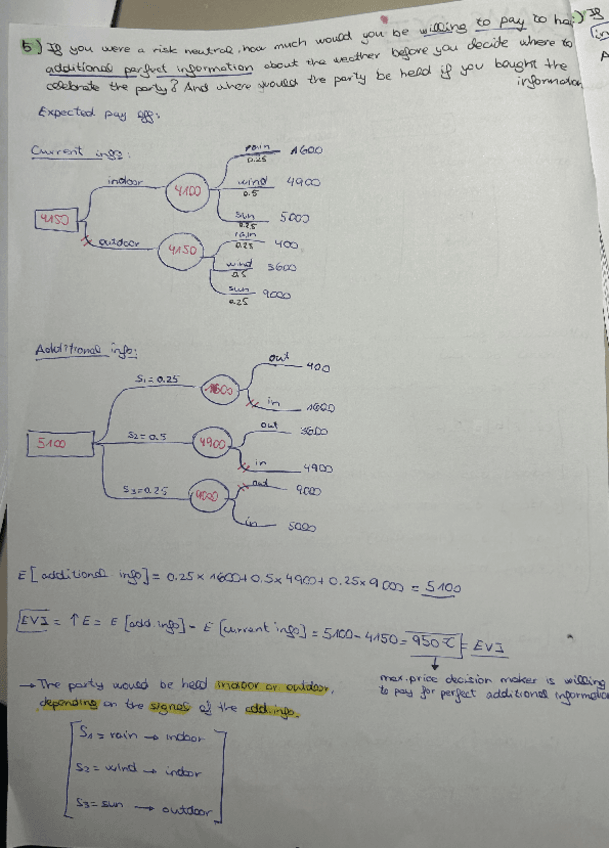 5) If you were a risk neutral, how much would you be willing to pay to ha
additional perfect information about the weather before you decide where to
celebrate the party? And where would the party be held if you bought the
information
Expected pay off:
Current info:
rain 0.25 1600
indoor 4100 wind 0.5 4900
sun 0.25 5000
4150
rain 0.25 400
outdoor 4150 wind 0.5 3600
sun 0.25 9000
Additional info:
out 400
S1 = 0.25 1600
in 1600
out 3600
5100 S2 = 0.5 4900
in 4900
out 9000
S3 = 0.25 9000
in 5000
E [additional info] = 0.25 x 1600 + 0.5 x 4900 + 0.25 x 9000 = 5100
EVI = ↑ E = E [add. info] - E [current info] = 5100 - 4150 = 950 € = EVI
max. price decision maker is willing
to pay for perfect additional information
→ The party would be held indoor or outdoor,
depending on the signes of the add. info.
S1 = rain → indoor
S2 = wind → indor
S3 = sun → outdoor